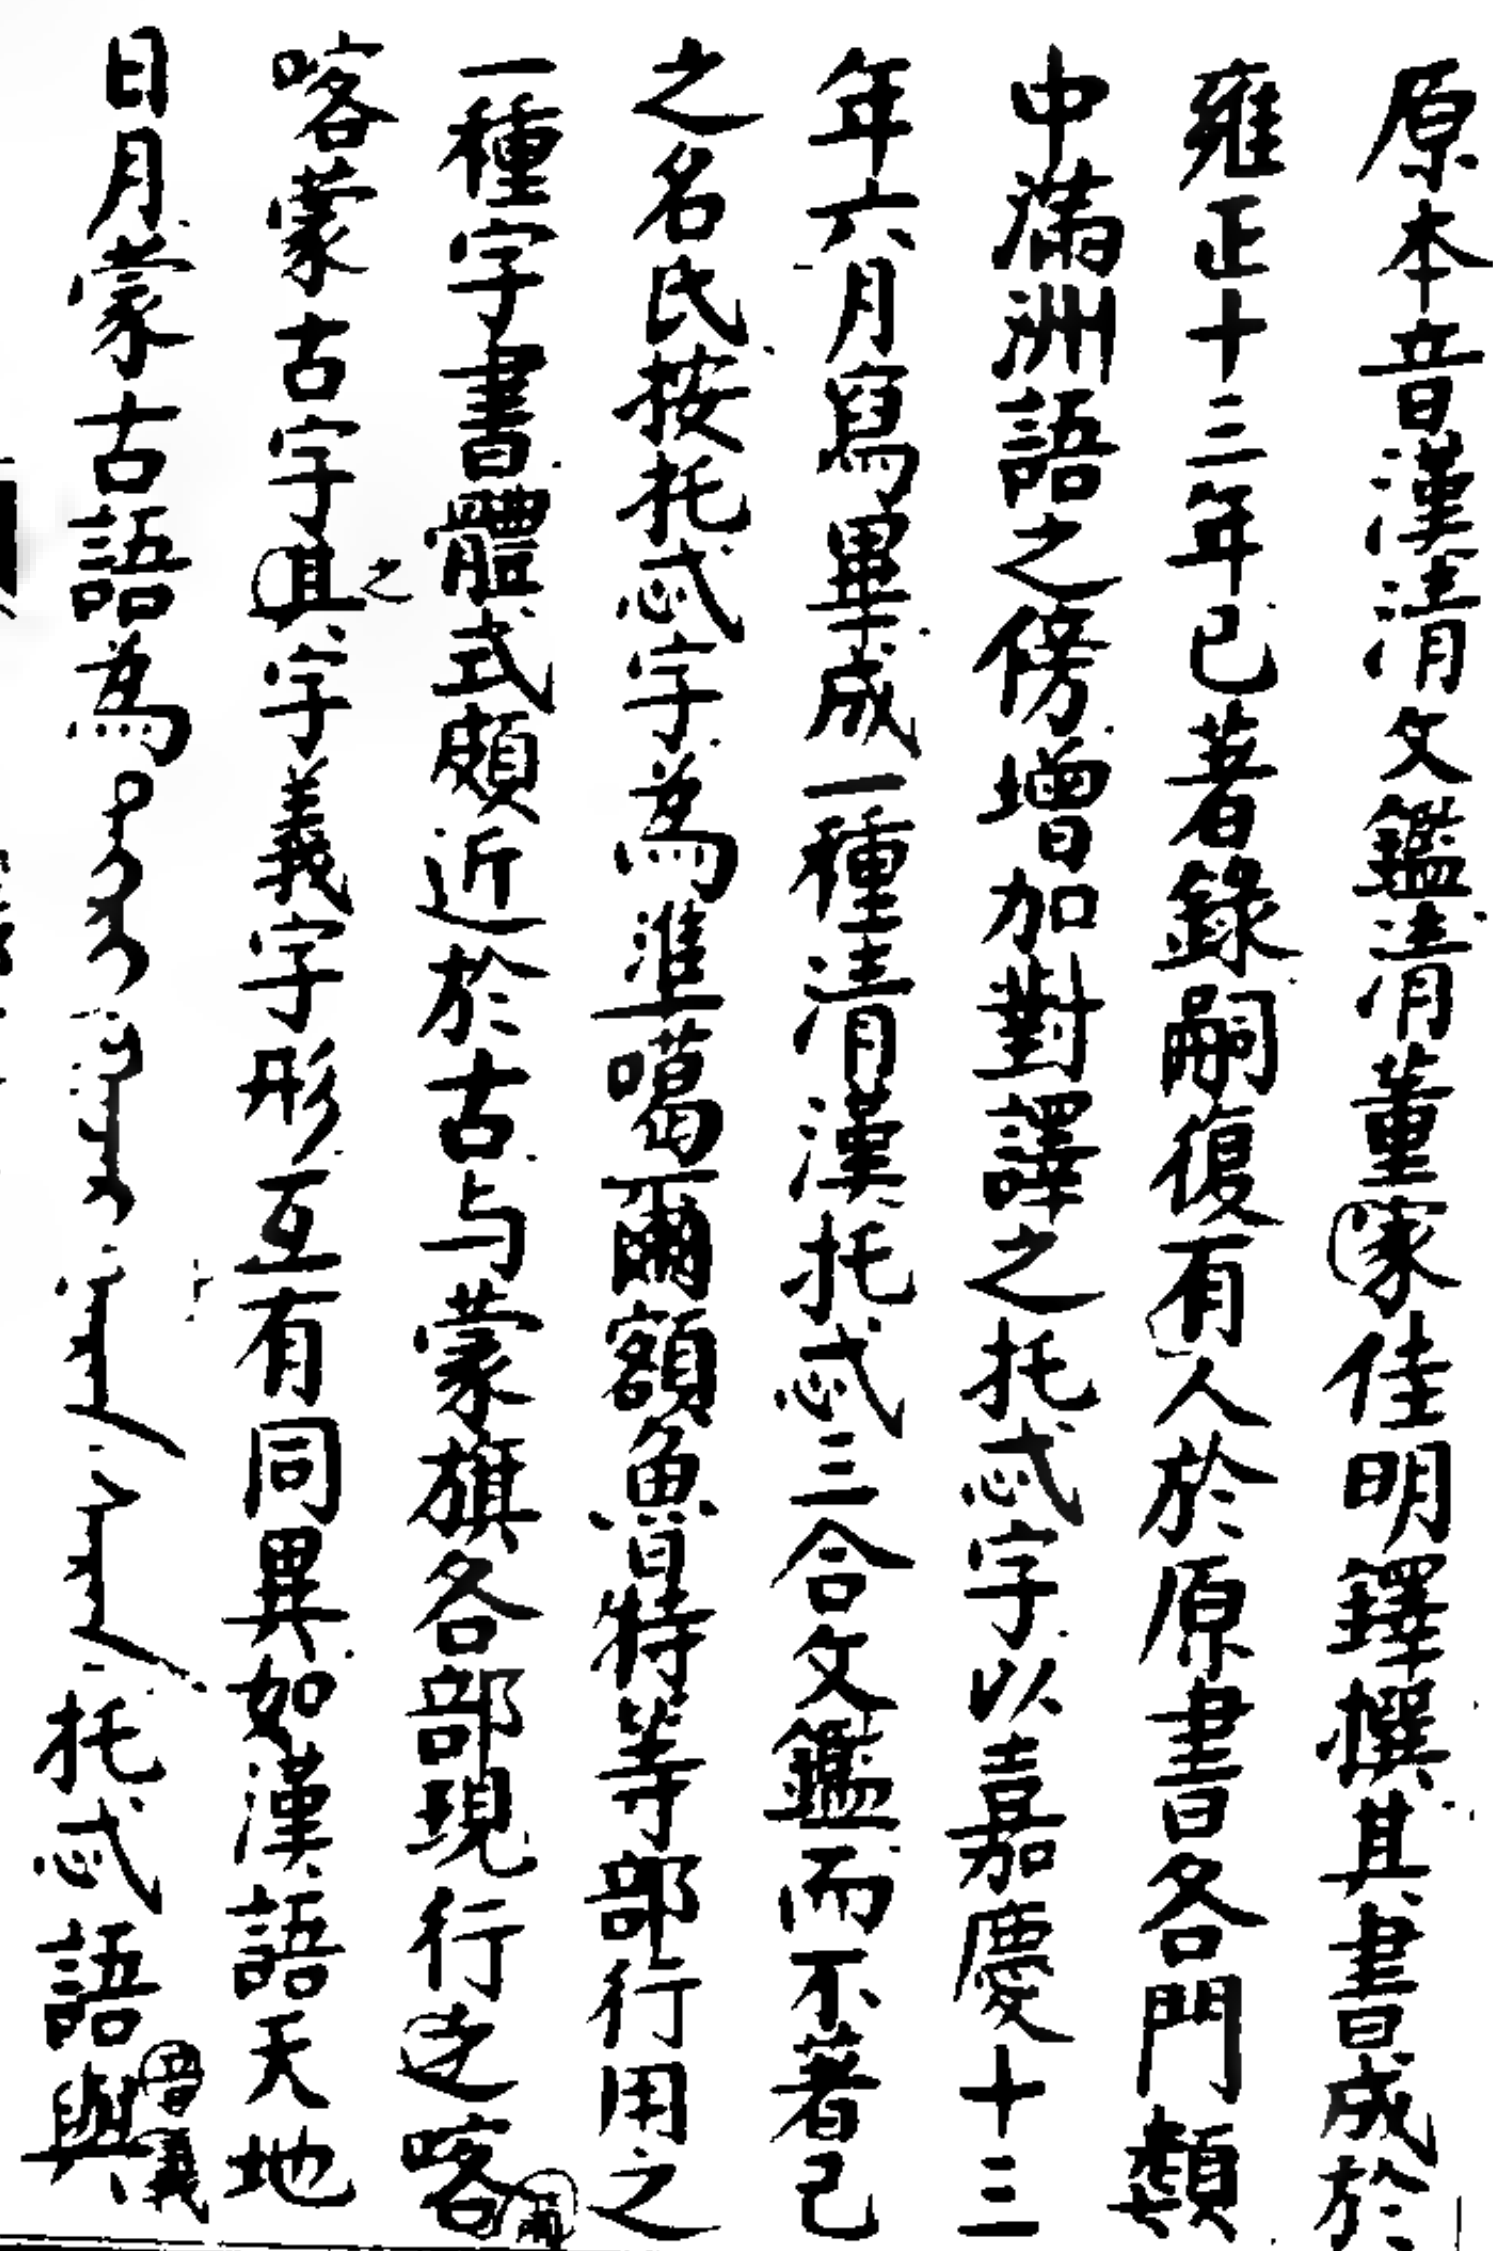 原本音漢清文鑑清董家佳明鐸撰其書成於
雍正十三年已著錄嗣復有人於原書各門類
中滿洲語之傍增加對譯之托忒字以嘉慶十三
年六月寫畢成一種清漢托忒三合文鑑而不著己
之名氏按托忒字為準噶爾額魯特等部行用之
一種字書體式頗近於古与蒙旗各部現行之喀爾
喀蒙古字其之字義字形互有同異如漢語天地
日月蒙古語為托忒語與音義